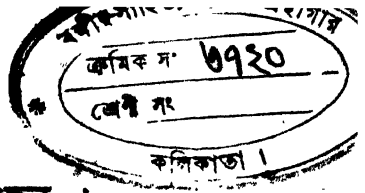 ক্রমিক সং ৬৭২০
শ্রেণী সং
কলিকাতা।